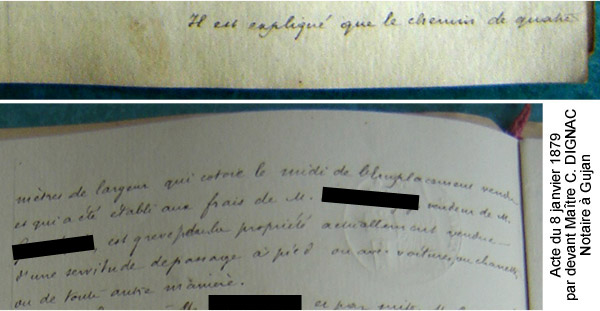 Il est expliqué que le chemin de quatre
mètres de largeur qui cotoie le midi de
et qui a été établi aux frais de M. vendeur de M.
est grevé propriété actuellement vendue
d'une servitude de passage à pied ou avec voitures, ou chevaux
ou de toute autre manière.
et par suite
Acte du 8 janvier 1879
par devant Maître C. DIGNAC
Notaire à Gujan